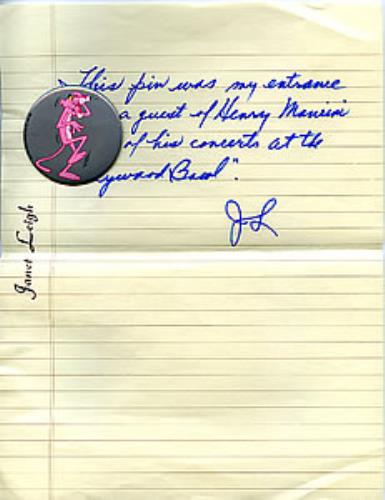 "This pin was my entrance
a guest of Henry Mancini
of his concerts at the
ywood Bowl".
JL
Janet Leigh